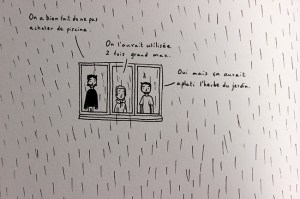 On a bien fait de ne pas
acheter de piscine.
On l'aurait utilisée
2 fois grand max.
Oui mais ça aurait
aplati l'herbe du jardin.